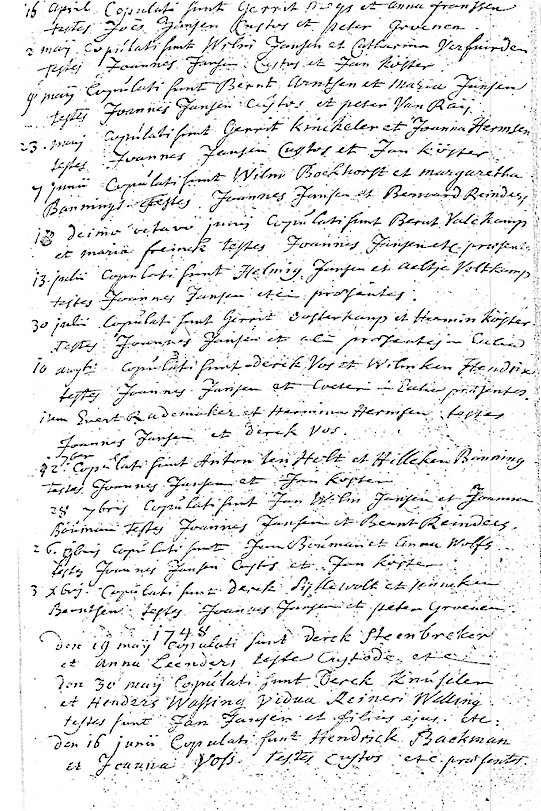 16 april. Copulati sunt Gerrit et anna franssen
testes Joes Jansen Custos et peter Groenen.
2 maij Copulati sunt Wilm Jansen et Catharina Verfuirden
testes Joannes Jansen Custos et Jan köster
9 maij Copulati sunt Bernt Arntsen et maria Jansen
testes Joannes Jansen Custos et peter Van Raij
23. maij Copulati sunt Gerrit Kinckeler et Joanna Hermsen
testes Joannes Jansen Custos et Jan köster
7 junii Copulati sunt Wilm Bockhorst et margaretha
Bannings. testes Joannes Jansen et Bernard Reinders
18 decimo octavo junij Copulati sunt Bernt Valckamp
et maria freinck testes Joannes Jansen etc. praesentes
13. julii Copulati sunt Helmig Jansen et aeltje Voltkamp
testes Joannes Jansen et praesentes.
30 julii Copulati sunt Gerrit oosterkamp et Hermin köster
testes Joannes Jansen et alii praesentes in
10 augti Copulati sunt derck Vos et Wilmken Hendrix
testes Joannes Jansen et Coeteri in praesentes.
item Evert Rademaker et Hermina Hermsen testes
Joannes Jansen et derck Vos.
7br
Copulati sunt Anton ten Holt et Hilleken Banning
testes Joannes Jansen et Jan köster
28 7bris Copulati sunt Jan Wilm Jansen et Joanna
Bouman testes Joannes Jansen et Bernt Reinders.
26. Copulati sunt Jan Bouman et anna Wolfs
testes Joannes Jansen Custos et Jan köster
3 Xbris. Copulati sunt derck et
Berntsen. testes Joannes Jansen et peter Groenen
1748
den 19 maij Copulati sunt derck Steenbreker
et anna Leenders, teste Custode et
den 30 maij Copulati sunt Derck Knüseler
et Henders Wassing Vidua Reineri Welling
testes sunt Jan Jansen et filius ejus. etc.
den 16 junii Copulati sunt Hendrick Backman
et Joanna Voss. testes Custos etc. praesentes.